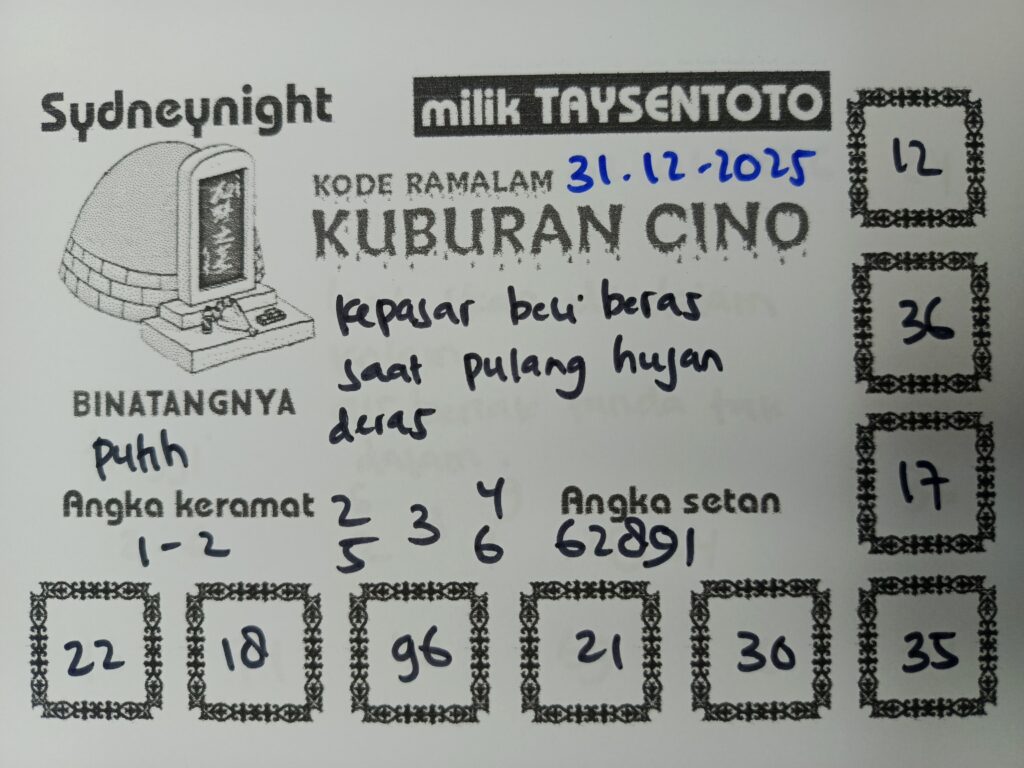 Sydneynight
milik TAYSENTOTO
KODE RAMALAM 31.12-2025
KUBURAN CINO
kepasar beli beras
saat pulang hujan
deras
BINATANGNYA
Angka keramat
1-2
2 3 4
5 6
Angka setan
62891
12
36
17
22 18 96 21 30 35